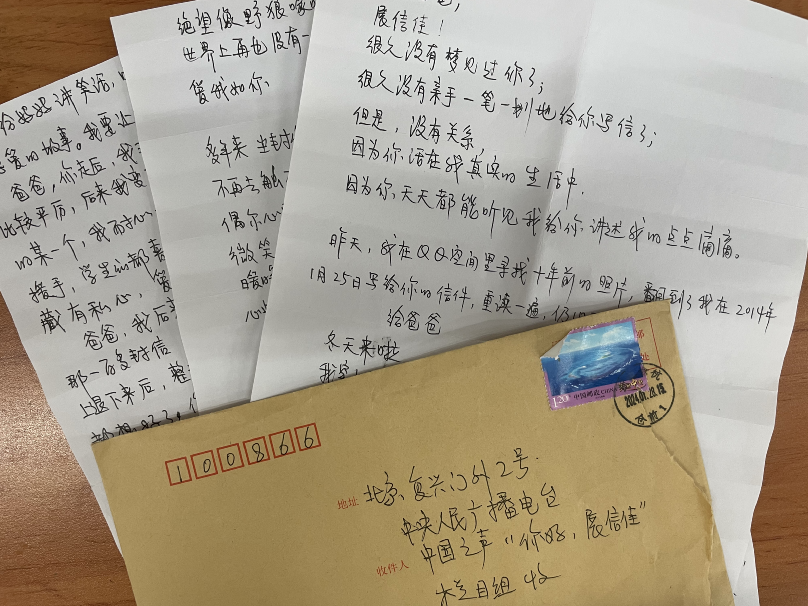 展信佳！
很久没有梦见过你了；
很久没有亲手一笔一划地给你写信了；
但是，没有关系，
因为你活在我真实的生活中.
因为你,天天都能听见我给你讲述我的点点滴滴。
昨天，我在QQ空间里寻找十年前的照片，翻到了我在2014年
1月25日写给你的信件，重读一遍，仍
给爸爸
冬天来啦
绝望像野狼嚎
世界上再也没有一
爱我如你.
多年来
不再去触
偶尔心
微笑
给妈妈讲笑话，
爱的故事。我要让
爸爸，你走后，我
比较平历，后来我要
的某一个，我而对心
播手，学生们都喜
藏有私心，爱
爸爸，我后
那一百多封信
上退下来后，整
100866
地址 北京.复兴门外2号.
中央人民广播电台
中国之声“你好，展信佳”
收件人
栏目组 收
1.20
中国邮政 CHINA
2024.01.23.18